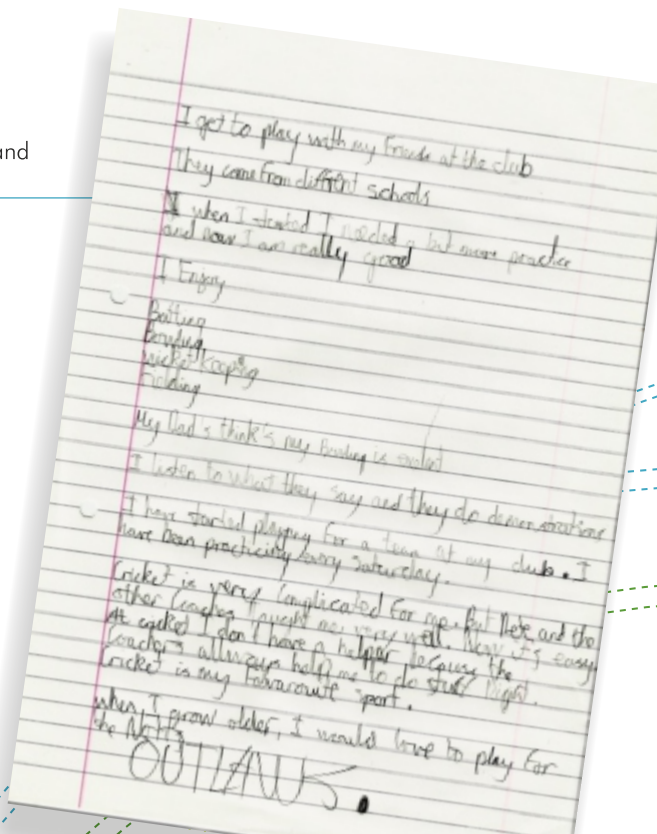 and
I get to play with my friends at the club
They come from different schools
when I started I needed a bit more practice
and now I am really good
I Enjoy
Batting
Bowling
wicket keeping
Fielding
My Dad's think's my Bowling is
I listen to what they say and they do demonstrations
I have started playing for a team at my club. I
have been practicing every Saturday.
Cricket is very complicated for me. But Pete and the
other Coaches taught me very well. Now it's easy.
At cricket I don't have a helper because the
Coachers allways help me to do stuff right.
Cricket is my favarouite sport.
when I grow older, I would love to play for
the Notts
OUTLAWS.